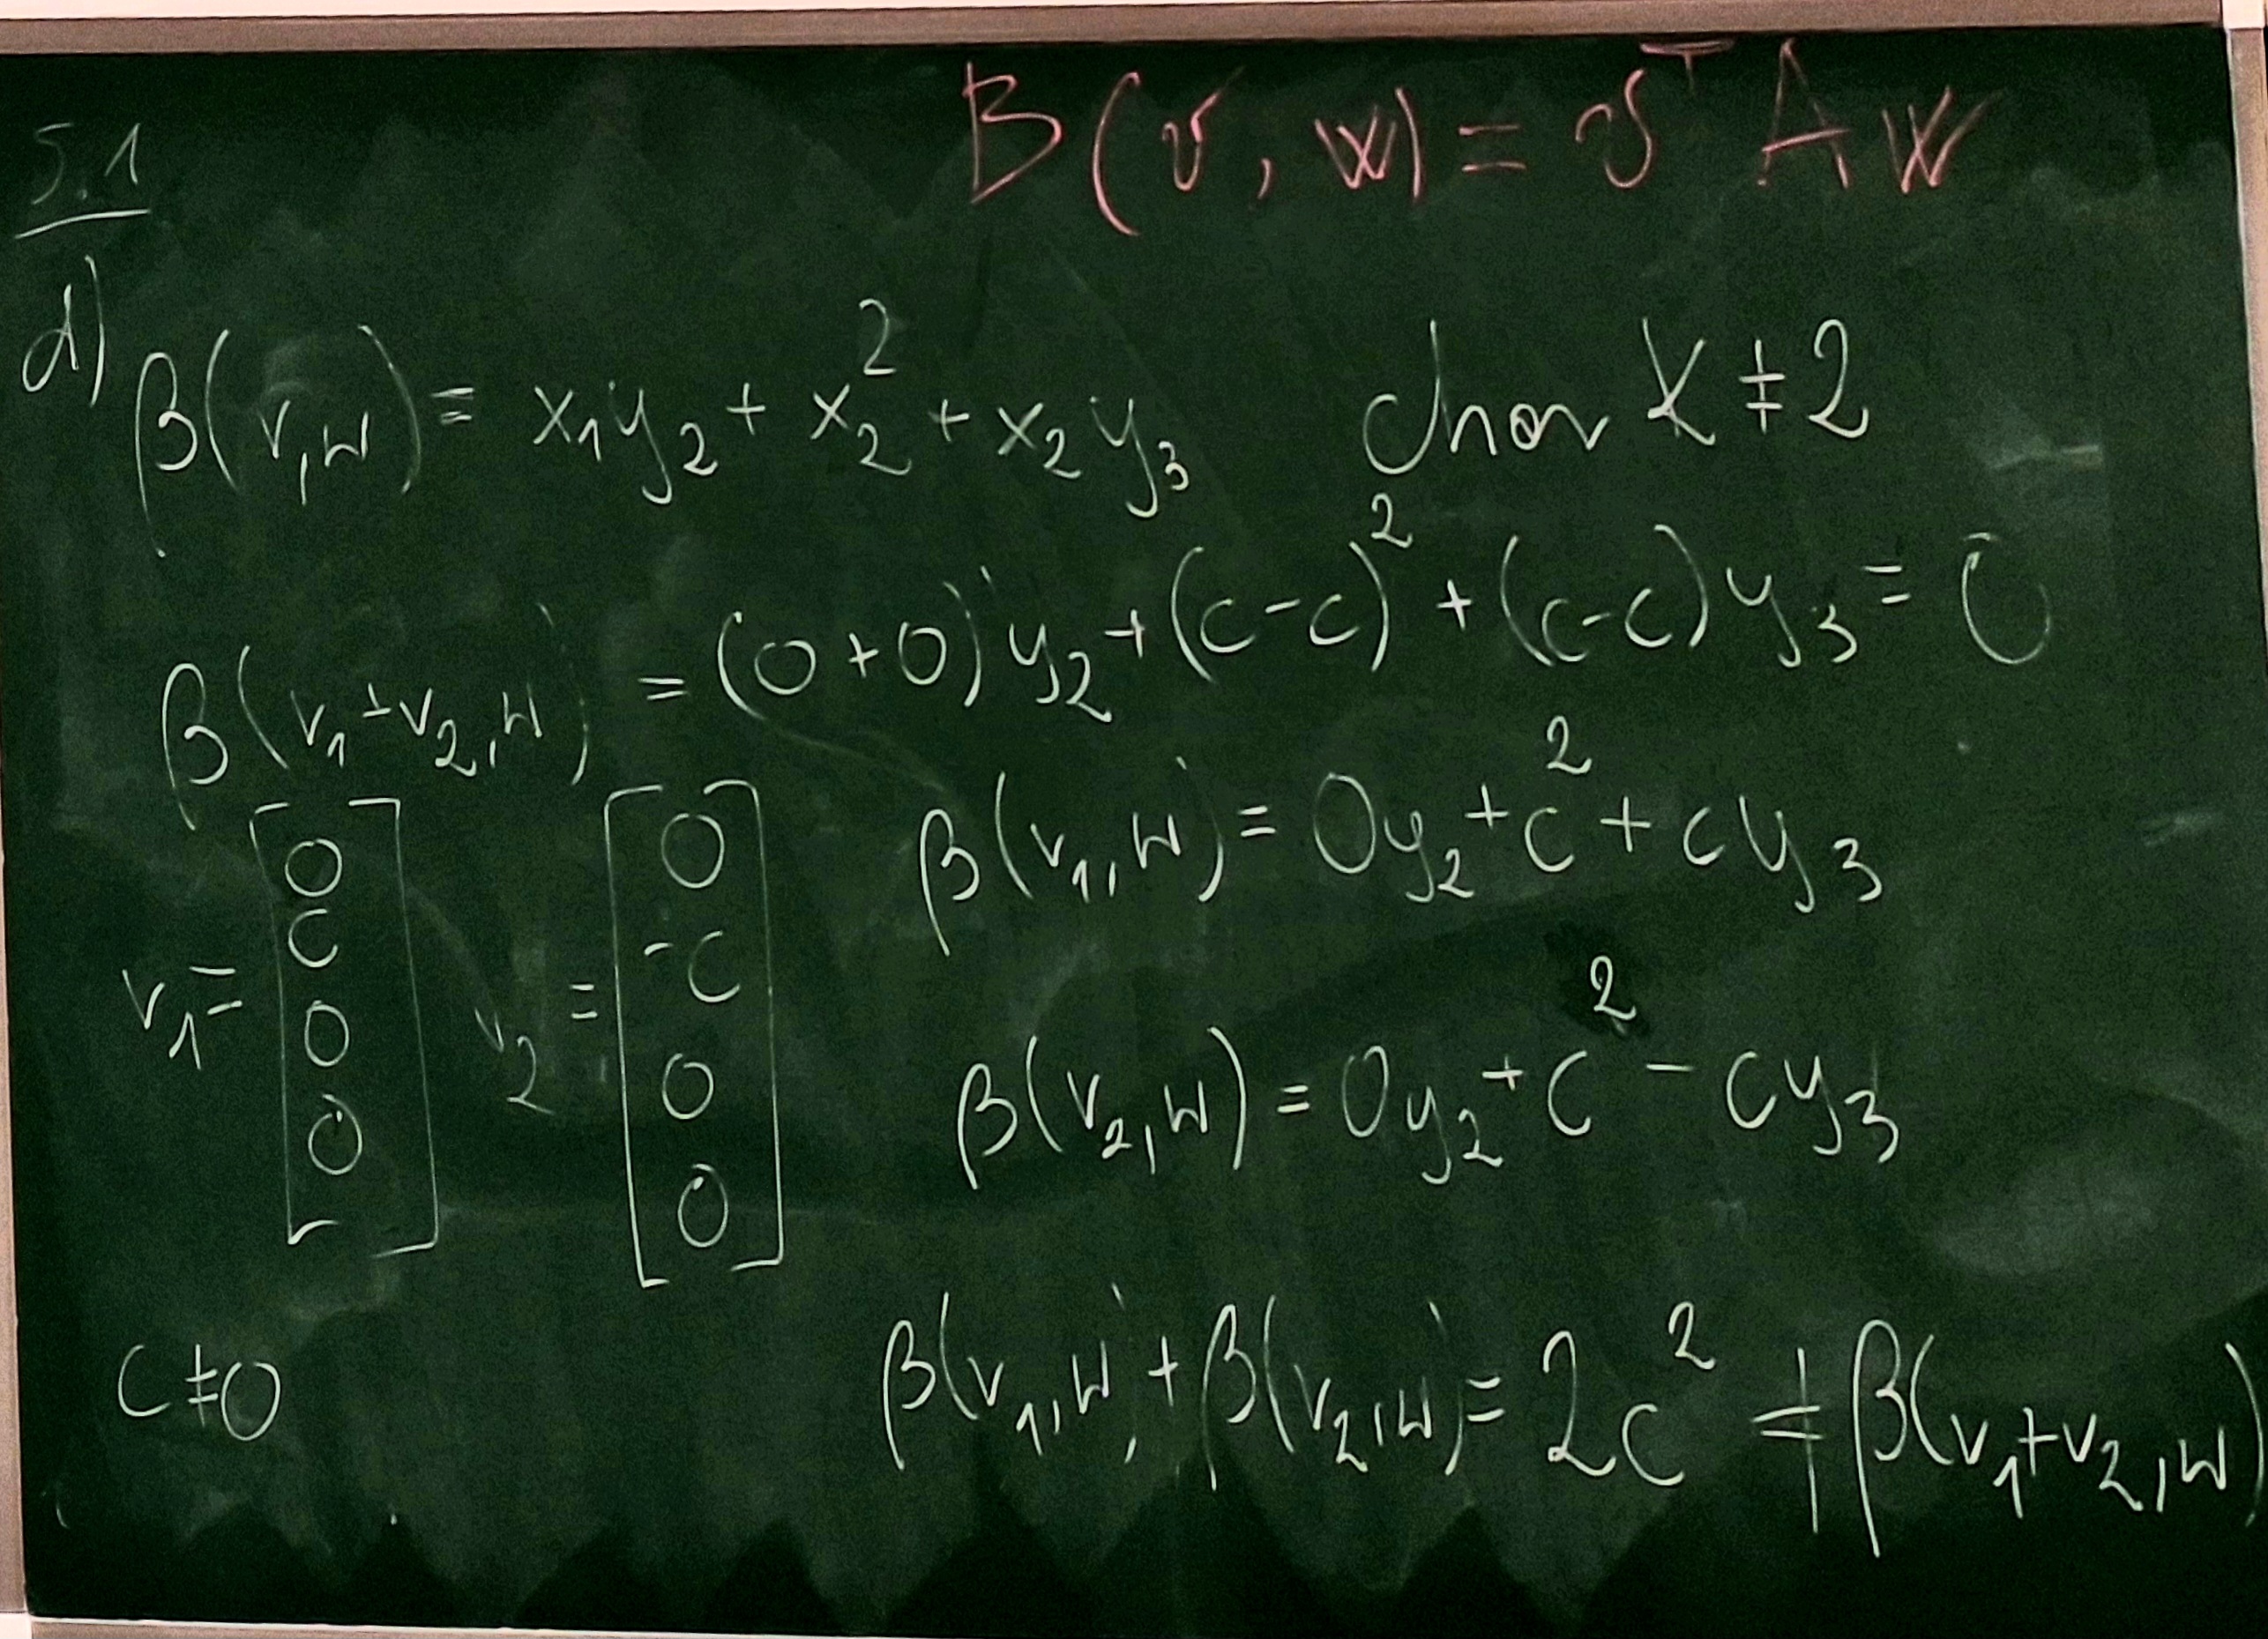 B(v, w) = vᵀ A w
5.1
d) β(v,w) = x₁y₂ + x₂² + x₂y₃ char K ≠ 2
β(v₁+v₂,w) = (0+0)y₂ + (c-c)² + (c-c)y₃ = 0
v₁ = [0 c 0 0] v₂ = [0 -c 0 0]
β(v₁,w) = 0y₂ + c² + cy₃
β(v₂,w) = 0y₂ + c² - cy₃
c ≠ 0
β(v₁,w) + β(v₂,w) = 2c² ≠ β(v₁+v₂,w)